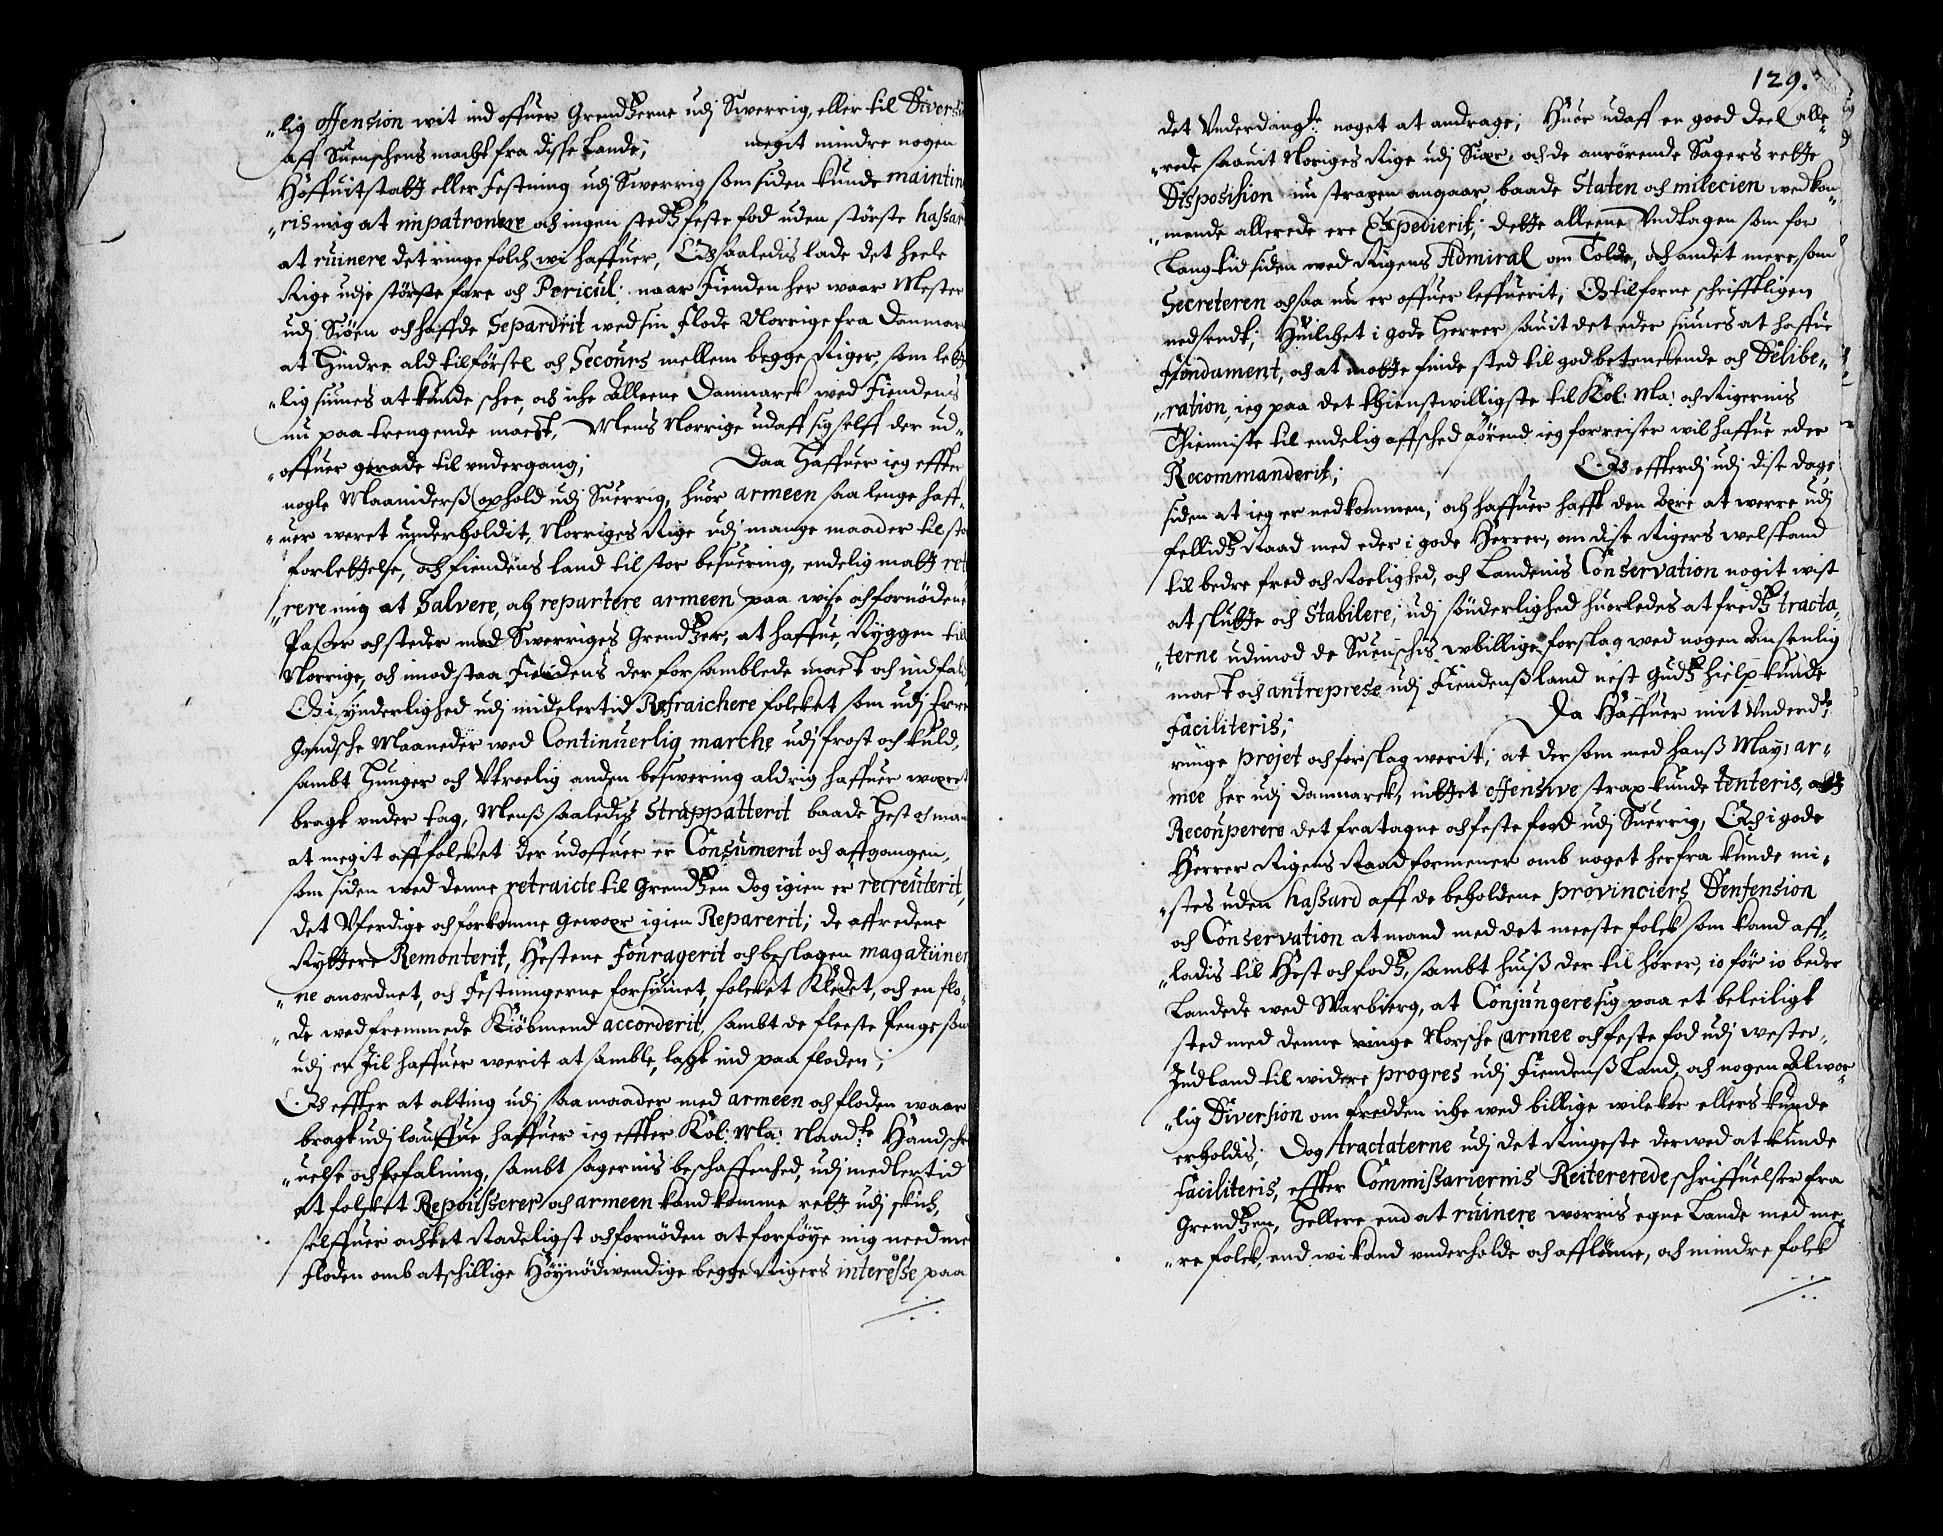 „lig offension wit ind offuer Grendtzerne udj Swerrig, eller til Diversi
aff Suenschens macht fra disse Lande; megit mindre nogen
Hoffuitstatt eller Festning udj Swerrig som siden kunde maintin
„ris mig at impatronere och ingen stedtz feste fod uden störste hassar
at ruinere det ringe folch wi haffuer, Och saaledis lade det heele
Rige udj störste fare och Pericul; naar Fienden her waar Mester
udj Siöen och haffde Separdrit wed sin flode Norrige fra Danmar
at Hindre ald tilförsel och Secours mellem begge Riger, som lett
„lig siunes at kunde schee, och iche Alleene Danmarck wed Fiendens
nu paa trengende macht, Mens Norrige udaff sig selff der ud„
„offuer gerade til undergang; Daa Haffuer ieg effter
nogle Maanniderß ophold udj Suerrig, huor armeen saa lenge haff„
„uer weret underholdit, Norriges Rige udj mange maader til sto
forlettelse, och fiendens land til stor besuering, endelig matt ret
„rere mig at Salvere, at repartere armeen paa wise och fornödene
Passer och steder med Swerriges Grendtzer, at haffue Ryggen till
Norrige, och imodstaa Fiendens der forsamblede mact och indfald
Och i synderlighed udj midelertid Refraichere folcket som udj trre
gandsche Maaneder wed Continuerlig marche udj frost och kuld,
sambt Hunger och Utroelig anden beswering aldrig haffuer waaret
bragt under tag, Menß saaledis Strappatterit baade Hest och man
at megit aff folcket der udoffuer er Consumerit och affgangen,
som siden wed denne retraicte til Grendtzen dog igien er recreuterit,
det Uferdige och forkomne Gewaar igien Reparerit; de affredene
Ryttere Remonterit, Hestene fouragerit och beslagen magatziner
„ne anordnet, och Festningerne forsiunet, folcket Kledet, och en flo„
„de wed fremmede Kiöbmend accorderit, sambt de fleeste Penge som
udj en Jil haffuer werit at samble, lagt ind paa floden;
Och effter at alting udj saa maader med armeen och floden waar
bragt udj lauffue haffuer ieg effter Kol: Ma: Naadte Handschri
„uelse och befalning, sambt sagernis beschaffenhed, udj medlertid
at folcket Repousserer och armeen kand komme rett udj skich,
selffuer achtet Radeligst och fornöden at forföye mig need med
floden omb atschillige Höynödwendige begge Rigers interesse paa
129.
det Underdanigste noget at andrage; Huor udaff en good deel alle„
„rede saauit Noriges Rige udj Siör, och de anrörende Sagers rette
Disposision nu straxen angaar, baade Staten och milecien wedkom„
„mende allerede ere Expedierit; dette alleene Undtagen som for
Lang tid siden wed Rigens Admiral om Tolde, och andet mere som
Secreteren och saa nu er offuer leffuerit, Och tilforne schrifftligen
nedsendt; Huilchet i gode Herrer sauit det eder siunes at haffue
ffondament, och at motte finde sted til godbetenckende och Delibe„
„ration, ieg paa det thienstwilligste til Kol: Ma: och Rigernis
Thienniste til endelig affsched aörend ieg forreiser wil haffue eder
Recommanderit; Och effterdj udj diste dage
siden at ieg er nedkommen, och haffuer hafft den Ære at werre udj
fellidtz Raad med eder i gode Herrer, om disse Rigers welstand
til bedre fred och Roelighed, och Landenis Conservation nogit wist
at slutte och Stabilere; udj sönderlighed huorledes at fredtz tracta„
„terne udimod de Suenschis ubillige forslag wed nogen Ansenlig
mact och antreprese udj Fiendenßland nest gudtz hielp kunde
Faciliteris; Da Haffuer mit Underdte
ringe projet och forslag werit; at der som med hanß May: ar„
mee her udj Danmarck, intet offensive strax kunde tenteris, at
Recouperere det fratagne och feste food udj Suerrig, Och i gode
Herrer Rigens Raad formener omb noget herfra kunde mi„
„stes uden hassard aff de beholdene provinciers Denfension
och Conservation at mand med det meeste folck som kand aff„
„ladis til Hest och fodtz, sambt huiß der til hörer, io för io bedre
Landede wed Warbierg, at Conjungere sig paa et beleiligt
sted med denne ringe Norsche armee och feste fod udj wester„
Judland til widere progres udj Fiendenß Land, och nogen Alwor
„lig Diversion om fredden iche wed billige wilckor ellers kunde
erholdis; Dog tractaterne udj det Ringeste derwed at kunde
faciliteris, effter Commissariernis Reitererede schriffuelser fra
Grendtzen, Hellere end at ruinere worris egne Lande med me„
„re folck, end wi kand underholde och afflönne, och mindre folck